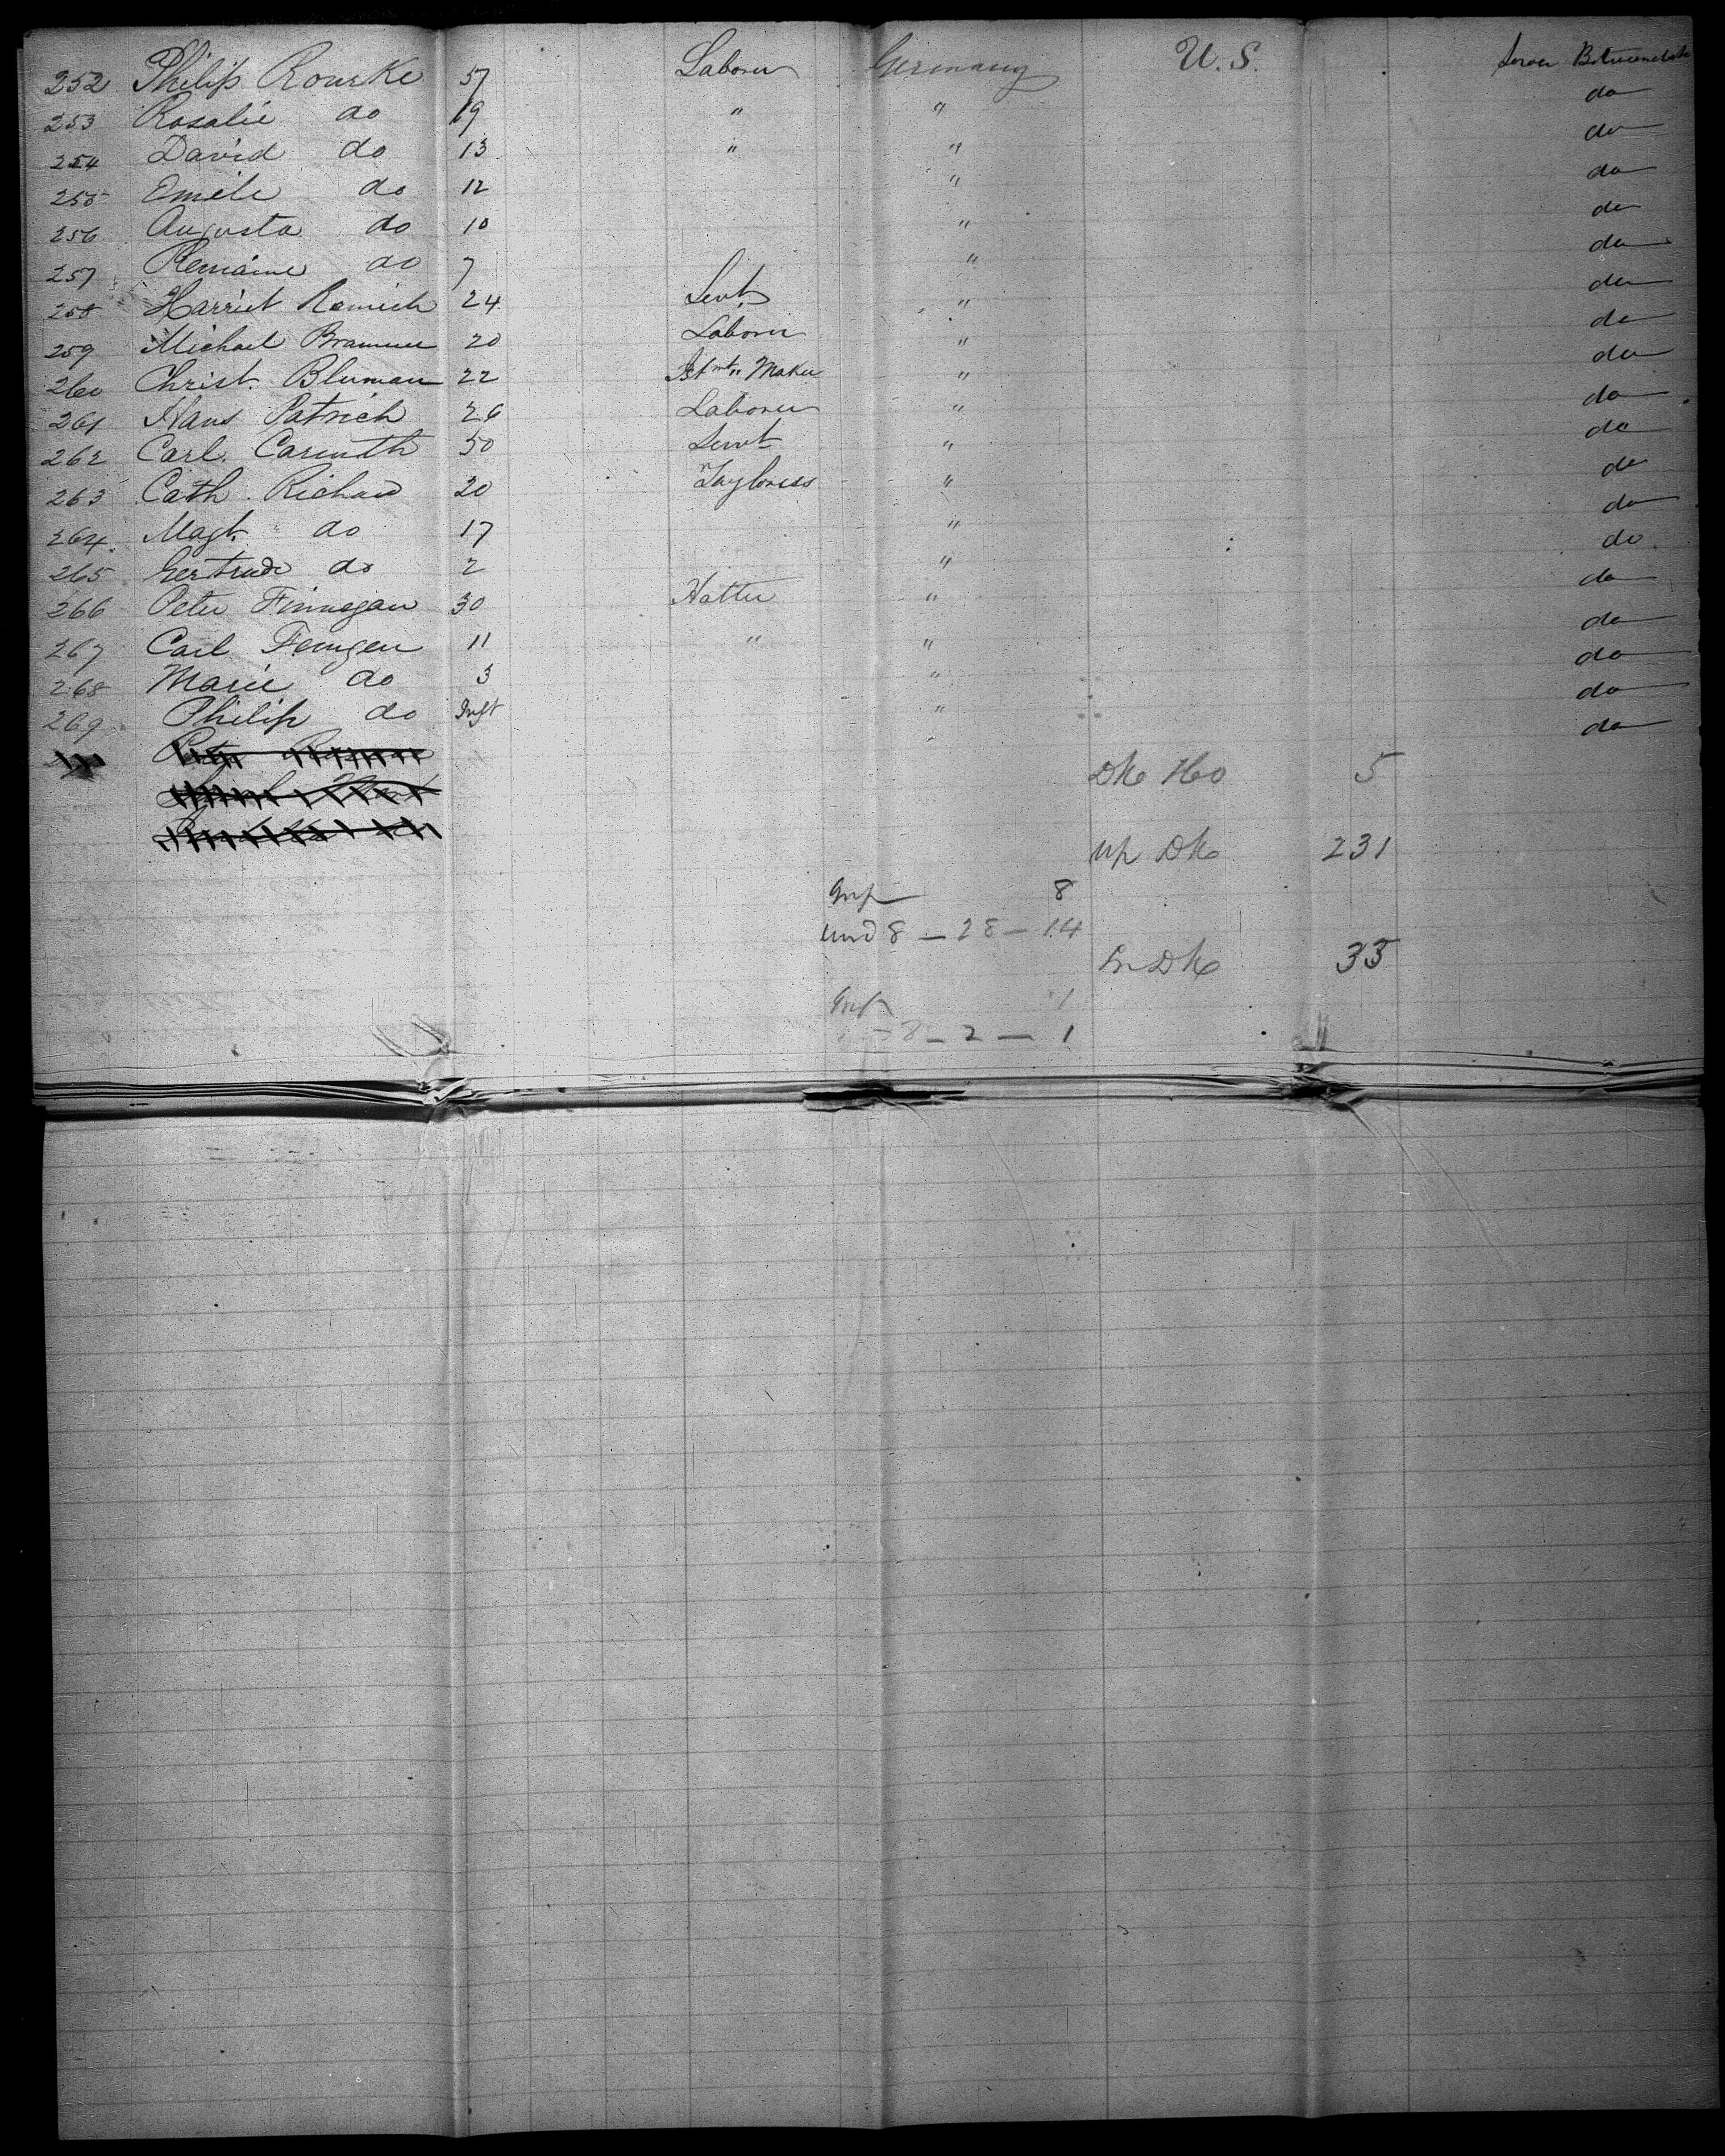 252 Philip Rourke 57 Laborer Germany U. S. Lower Betweendeck
253 Rosalie do 19 " " do
254 David do 13 " " do
255 Emile do 12 " do
256 Augusta do 10 " do
257 do 7 " do
258 Harriet Romich 24 Servt. " do
259 Michael 20 Laborer " do
260 Christ. Bluman 22 Maker " do
261 Hans Patrich 26 Laborer " do
262 Carl. 50 Servt " do
263 Cath. Richard 20 Tayloress " do
264 Magt. do 17 " do
265 Gertrude do 2 " do
266 Peter Finnegan 30 Hatter " do
267 Carl Fengen 11 " " do
268 Marie do 3 " do
269 Philip do Inft " do
5
up 231
Inf 8
und 8 — 28 — 14
33
Inf 1
8 — 2 — 1